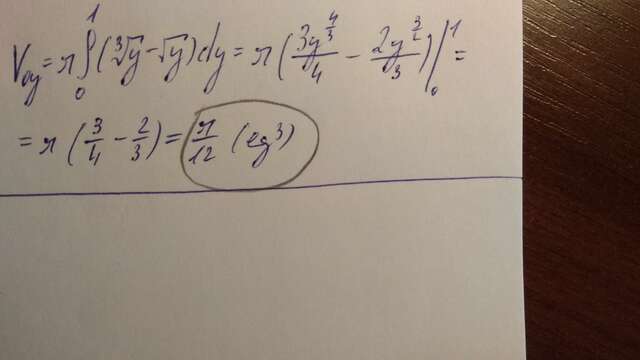 V_oy = π ∫₀¹ (∛y − √y) dy = π (3y^(4/3)/4 − 2y^(3/2)/3) |₀¹ =
= π (3/4 − 2/3) = π/12 (ед³)